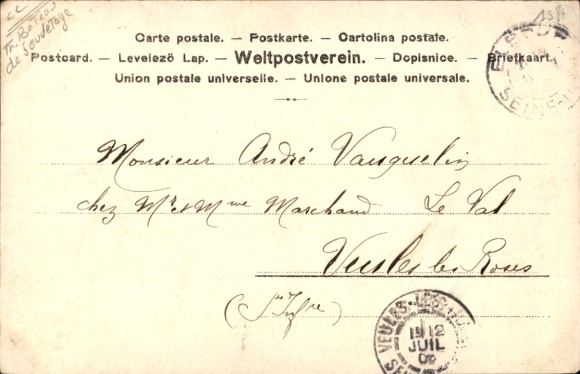 CC
de Sauvetage
Carte postale. – Postkarte. – Cartolina postale.
Postcard. – Levelező Lap. – Weltpostverein. – Dopisnice. – Briefkaart.
Union postale universelle. – Unione postale universale.
SEINE
Monsieur André Vauquelin
chez Mr et Mme Marchand Le Val
Veules les Roses
(Sne Infre)
VEULES-LES-ROSES
12
JUIL